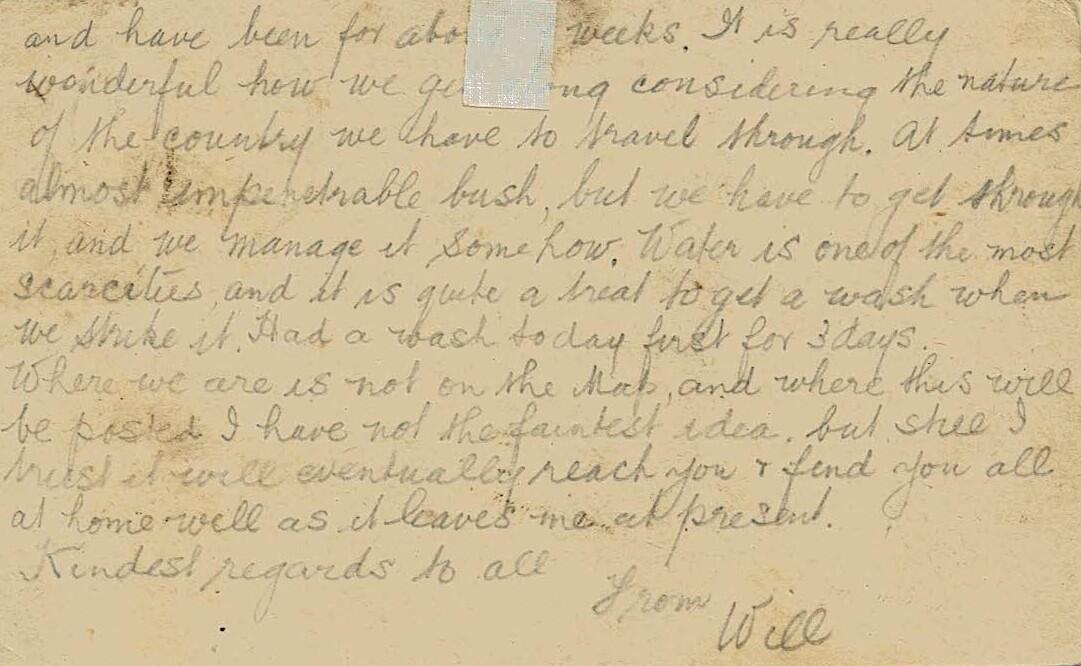 and have been for abo weeks. It is really
wonderful how we ge ng considering the nature
of the country we have to travel through. At times
almost impenetrable bush, but we have to get through
it, and we manage it somehow. Water is one of the most
scarcities, and it is quite a treat to get a wash when
we strike it. Had a wash today first for 3 days.
Where we are is not on the Map, and where this will
be posted I have not the faintest idea. but still I
trust it will eventually reach you & find you all
at home well as it leaves me at present.
Kindest regards to all
From
Will